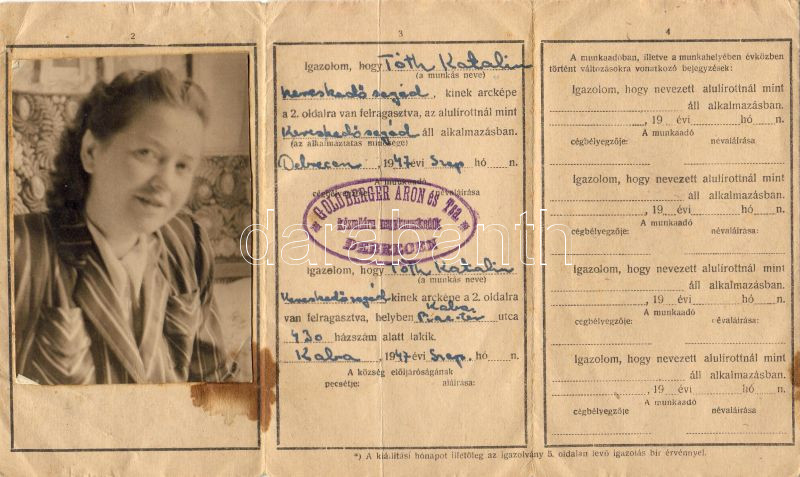 2
3
Igazolom, hogy Tóth Katalin
(a munkás neve)
kereskedő segéd, kinek arcképe
a 2. oldalra van felragasztva, az alulírottnál mint
Kereskedő segéd áll alkalmazásban.
(az alkalmaztatás minősége)
Debrecen, 1947 évi Szep hó n.
A munkaadó
cégbélyegzője: névaláírása
GOLDBERGER ÁRON és Tsa.
DEBRECEN
Igazolom, hogy Tóth Katalin
(a munkás neve)
Kereskedő segéd kinek arcképe a 2. oldalra
van felragasztva, helyben Kaba, Piac-tér utca
430 házszám alatt lakik.
Kaba, 1947 évi Szep. hó n.
A község elöljáróságának
pecsétje: aláírása:
4
A munkaadóban, illetve a munkahelyében évközben
történt változásokra vonatkozó bejegyzések:
Igazolom, hogy nevezett alulírottnál mint
áll alkalmazásban.
, 19 évi hó n.
A munkaadó
cégbélyegzője: névaláírása:
Igazolom, hogy nevezett alulírottnál mint
áll alkalmazásban.
, 19 évi hó n.
A munkaadó
cégbélyegzője: névaláírása:
Igazolom, hogy nevezett alulírottnál mint
áll alkalmazásban.
, 19 évi hó n.
A munkaadó
cégbélyegzője: névaláírása:
Igazolom, hogy nevezett alulírottnál mint
áll alkalmazásban.
, 19 évi hó n.
A munkaadó
cégbélyegzője: névaláírása:
*) A kiállítási hónapot illetőleg az igazolvány 5. oldalán levő igazolás bír érvénnyel.
darabanth.com